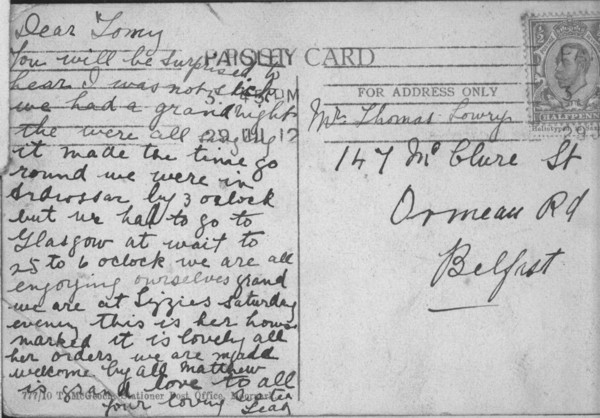 Dear Tomy
You will be surprised to
hear I was not sick
we had a grand night
the were all
it made the time go
round we were in
Ardrossan by 3 oclock
but we had to go to
Glasgow at wait to
25 to 6 oclock we are all
engoying ourselves grand
we are at Lizzies Saturday
evening this is her house
marked it is lovely all
her orders we are made
welcome by all Matthew
is grand love to all
Your loving Sister
Leah
POST CARD
PAISLEY
5. 45 PM
29 JU 12
FOR ADDRESS ONLY
HALFPENNY
Mr Thomas Lowry
147 Mc Clure St
Ormeau Rd
Belfast
777/10 Stationer Post Office,